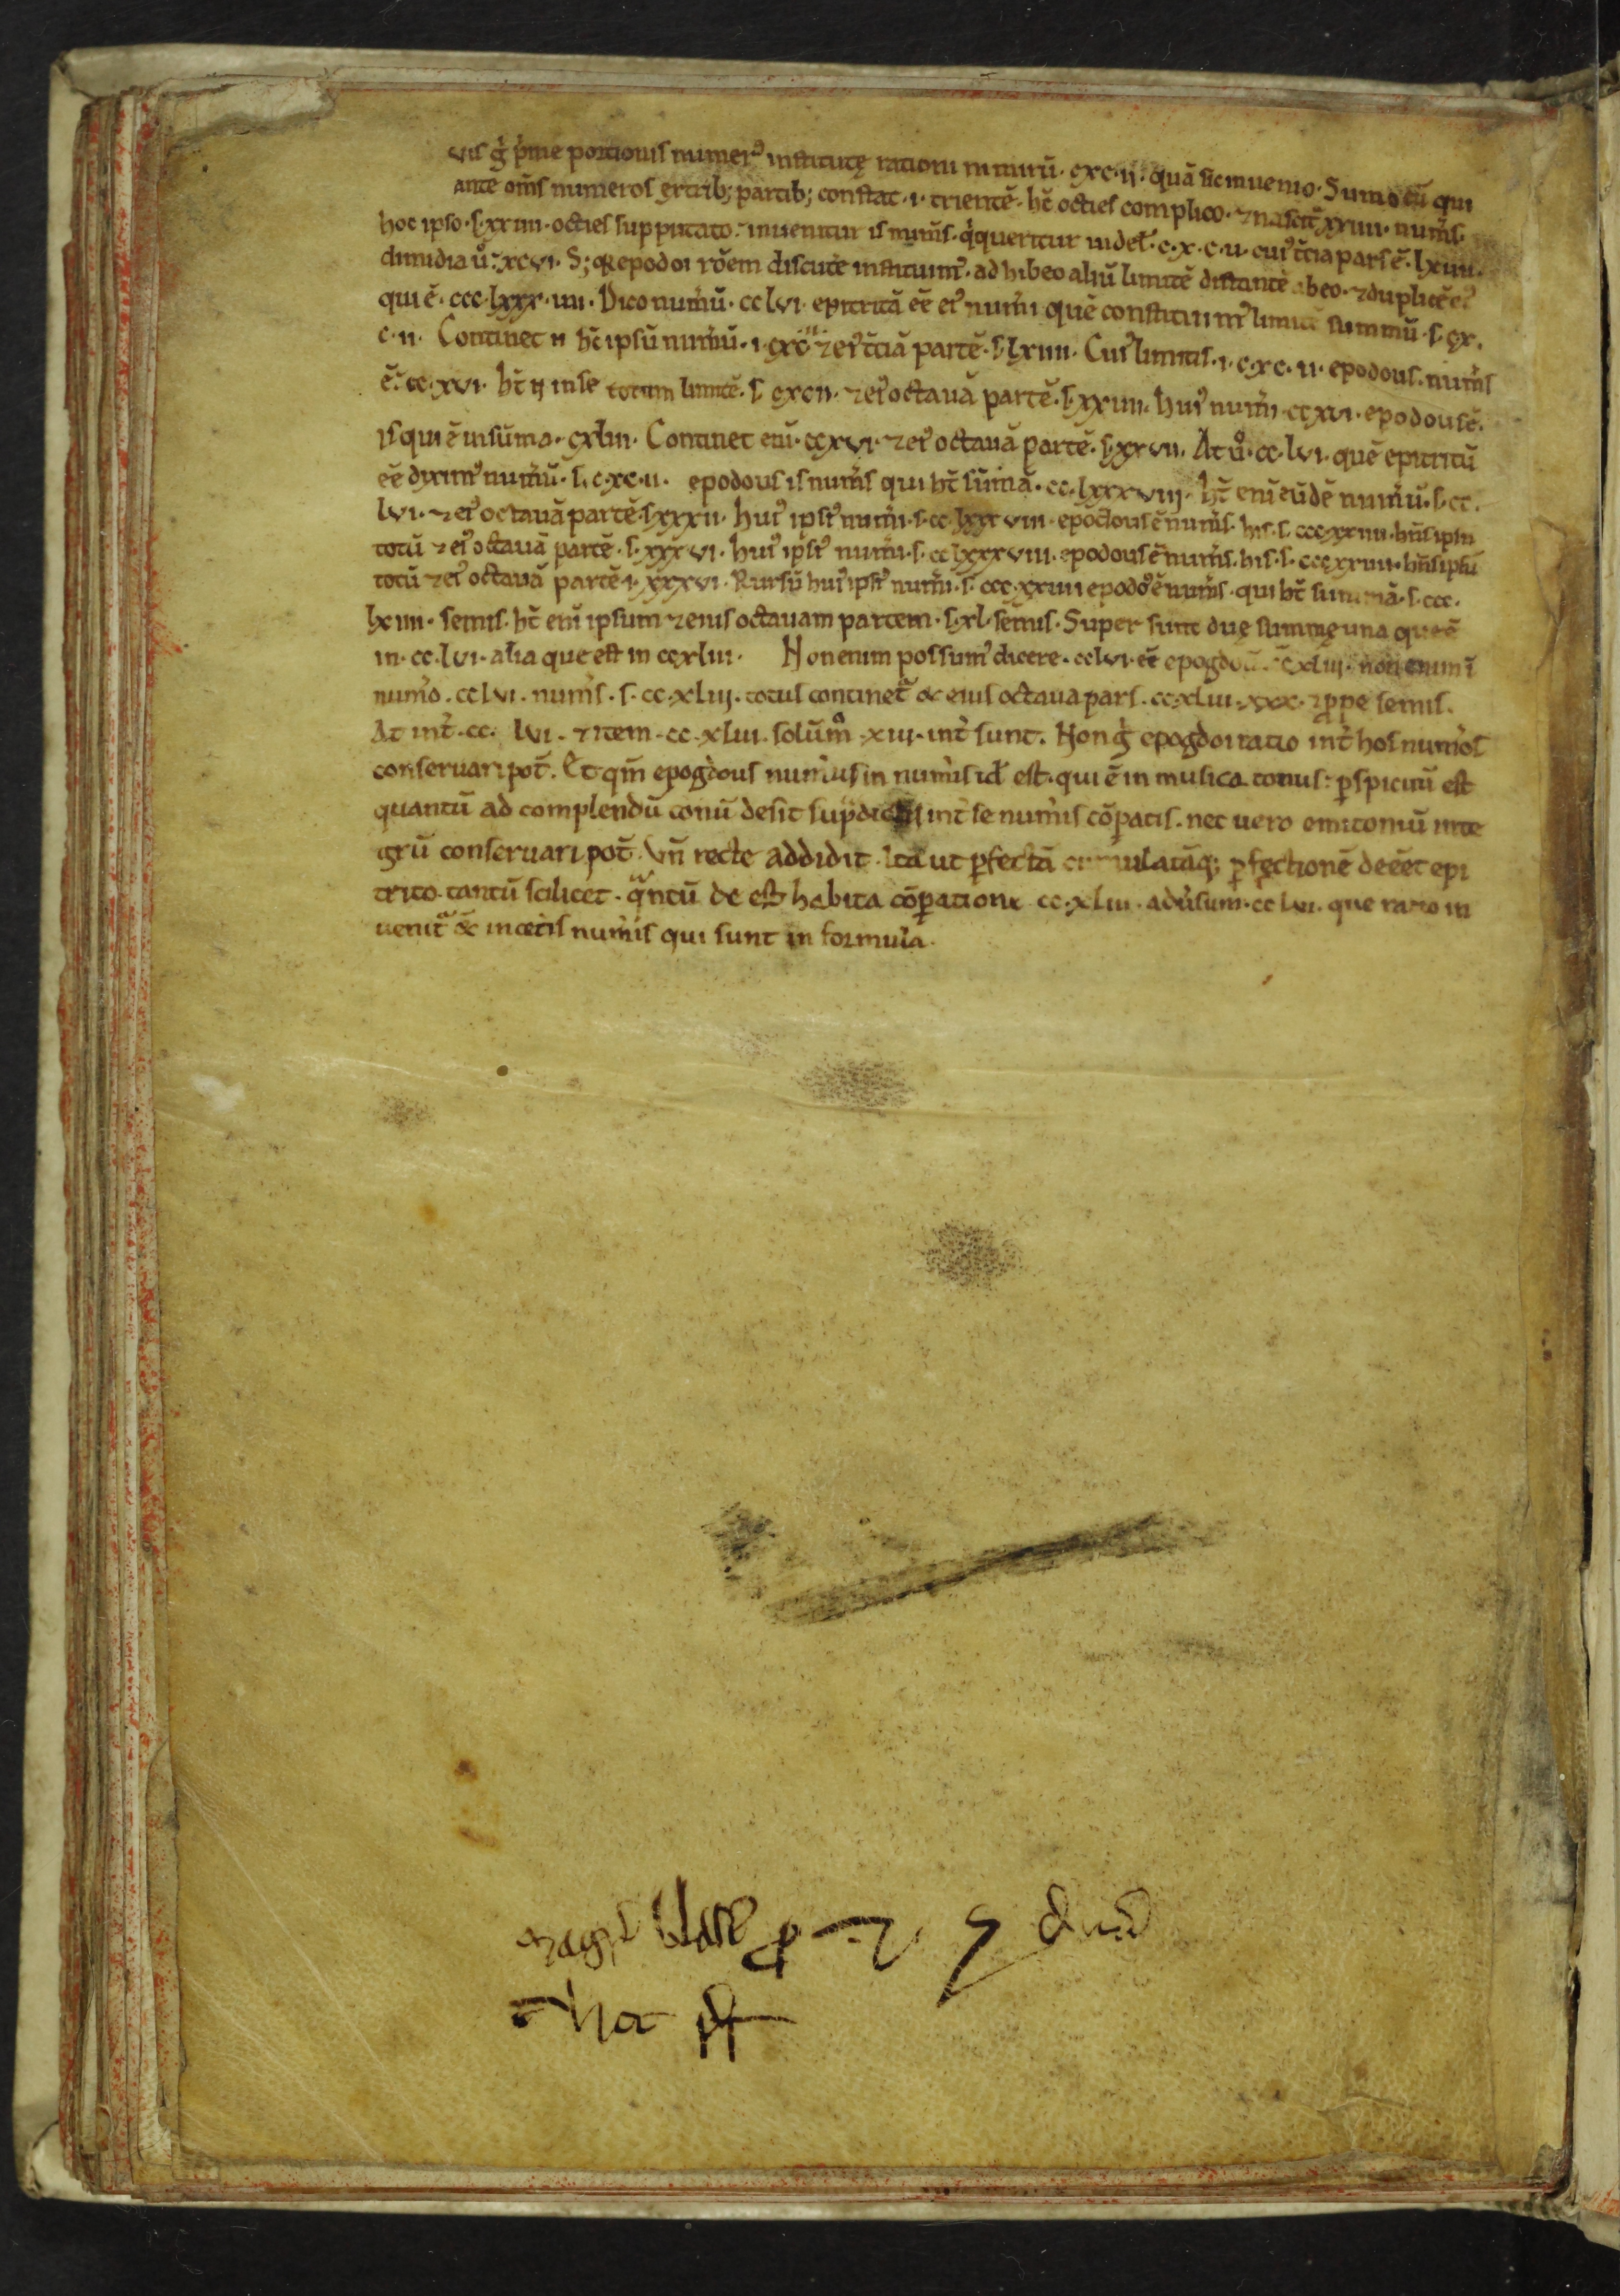 uis g̊ p̊me portionis numer᷒ institutę rationi mirũ · cxc·ii · quã sic inuenio · Sumo eũ qui
ante om̃s numeros ex trib; partib; constat · i · trientẽ · hc̃ octies complico · ⁊ nascit̃ xxiiii · num̃s
hoc ipso · s · xxiiii · octies supputato · inuenitur is num̃s · q̊ queritur uidel̃ · c·x·c·ii · cui᷒ t̃cia pars ẽ · lxiiii ·
dimidia ů · xcvi · S; q̃ epodoi rõem discute instituim᷒ · ad hibeo aliũ limitẽ distantẽ abeo · ⁊ duplicẽ ei᷒
qui ẽ · ccc·lxxx·iiii · Dico num̃ũ · cclvi · epitritũ eẽ ei᷒ num̃i quẽ constituim᷒ limitẽ summũ · s · cx·
c·ii · Continet ñ hc̃ ipsũ num̃ũ · i · cxcii ⁊ ei᷒ t̃ciã partẽ · s · lxiiii · Cui᷒ limitis · i · c·xc·ii · epodous · num̃s
ẽ · cc·xvi · hc̃ ñ in se totum limitẽ · s · cxcii · ⁊ ei᷒ octauã partẽ · s · xxiiii · hui᷒ num̃i ccxvi · epodous ẽ ·
is qui ẽ in sũma · cxliii · Continet eni᷒ · ccxvi · ⁊ ei᷒ octauã partẽ · s · xxvii · At ů · cc·lvi · quẽ epitritũ
eẽ dixim᷒ num̃ũ · s · c·xc·ii · epodous is num̃s qui hc̃ sũmã · cc·lxxxviij · hc̃ enĩ eũdẽ num̃ũ · s · cc·
lvi · ⁊ ei᷒ octauã partẽ · s · xxxii · hui᷒ ipsi᷒ num̃i · s · cc·lxxxviii · epodous ẽ num̃s · his · s · ccc·xxiiii · hñs ipsũ
totũ ⁊ ei᷒ octauã partẽ · s · xxxvi · hui᷒ ipsi᷒ num̃i · s · cclxxxviii · epodous ẽ num̃s · his · s · cccxxiiii · hñs ipsũ
totũ ⁊ ei᷒ octauã partẽ · i · xxxvi · Rursũ hui᷒ ipsi᷒ num̃i · s · ccc·xxiiii epodo᷒ ẽ num̃s · qui hc̃ summã · s · ccc·
lxiiii · semis · hc̃ enĩ ipsum ⁊ eius octauam partem · s · xl · semis · Super sunt duę summę una que ẽ
in · cc·lvi · alia que est in ccxliii · Non enim possum᷒ dicere · cclvi · eẽ epogdoũ · ccxliii · non enim ĩ
num̃o · cclvi · num̃s · s · cc·xliij · totus continet̃ & eius octaua pars · cc·xliii · xxx · ꝓpe semis ·
At int̃ · cc · lvi · ⁊ item · cc·xliii · solũm̊ · xiii · int̃ sunt · Non g̊ epogdoi ratio int̃ hos num̃os
conseruari pot̃ · Et qm̃ epogdous num̃us in num̃is id est · qui ẽ in musica tonus · ꝑspicuũ est
quantũ ad complendũ tonũ desit sup̃dictis int̃ se num̃is cõpatis · nec uero emitoniũ inte
grũ conseruari pot̃ · Vñ recte addidit · Ita ut ꝑfectã cumulatãq; ꝑfectionẽ deẽet epi
trito · tantũ scilicet · q̃ntũ de est habita cõparatione cc·xliii · adũsum · cclvi · que ratio in
uenit̃ & in cet̃is num̃is qui sunt in formula ·